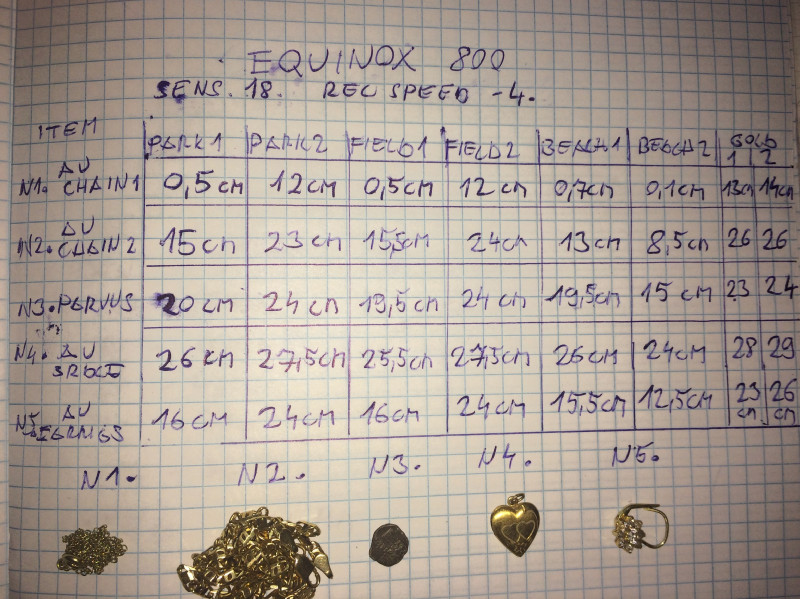 EQUINOX 800
SENS. 18. REC SPEED -4.
ITEM PARK1 PARK2 FIELD1 FIELD2 BEACH1 BEACH2 GOLD 1 2
N1. AU CHAIN1 0,5cm 12cm 0,5cm 12cm 0,7cm 0,1cm 13cm 14cm
N2. AU CHAIN2 15cm 23cm 15,5cm 24cm 13cm 8,5cm 26 26
N3. PARVUS 20cm 24cm 19,5cm 24cm 19,5cm 15cm 23 24
N4. AU 26cm 27,5cm 25,5cm 27,5cm 26cm 24cm 28 29
N5. AU 16cm 24cm 16cm 24cm 15,5cm 12,5cm 23cm 26cm
N1. N2. N3. N4. N5.